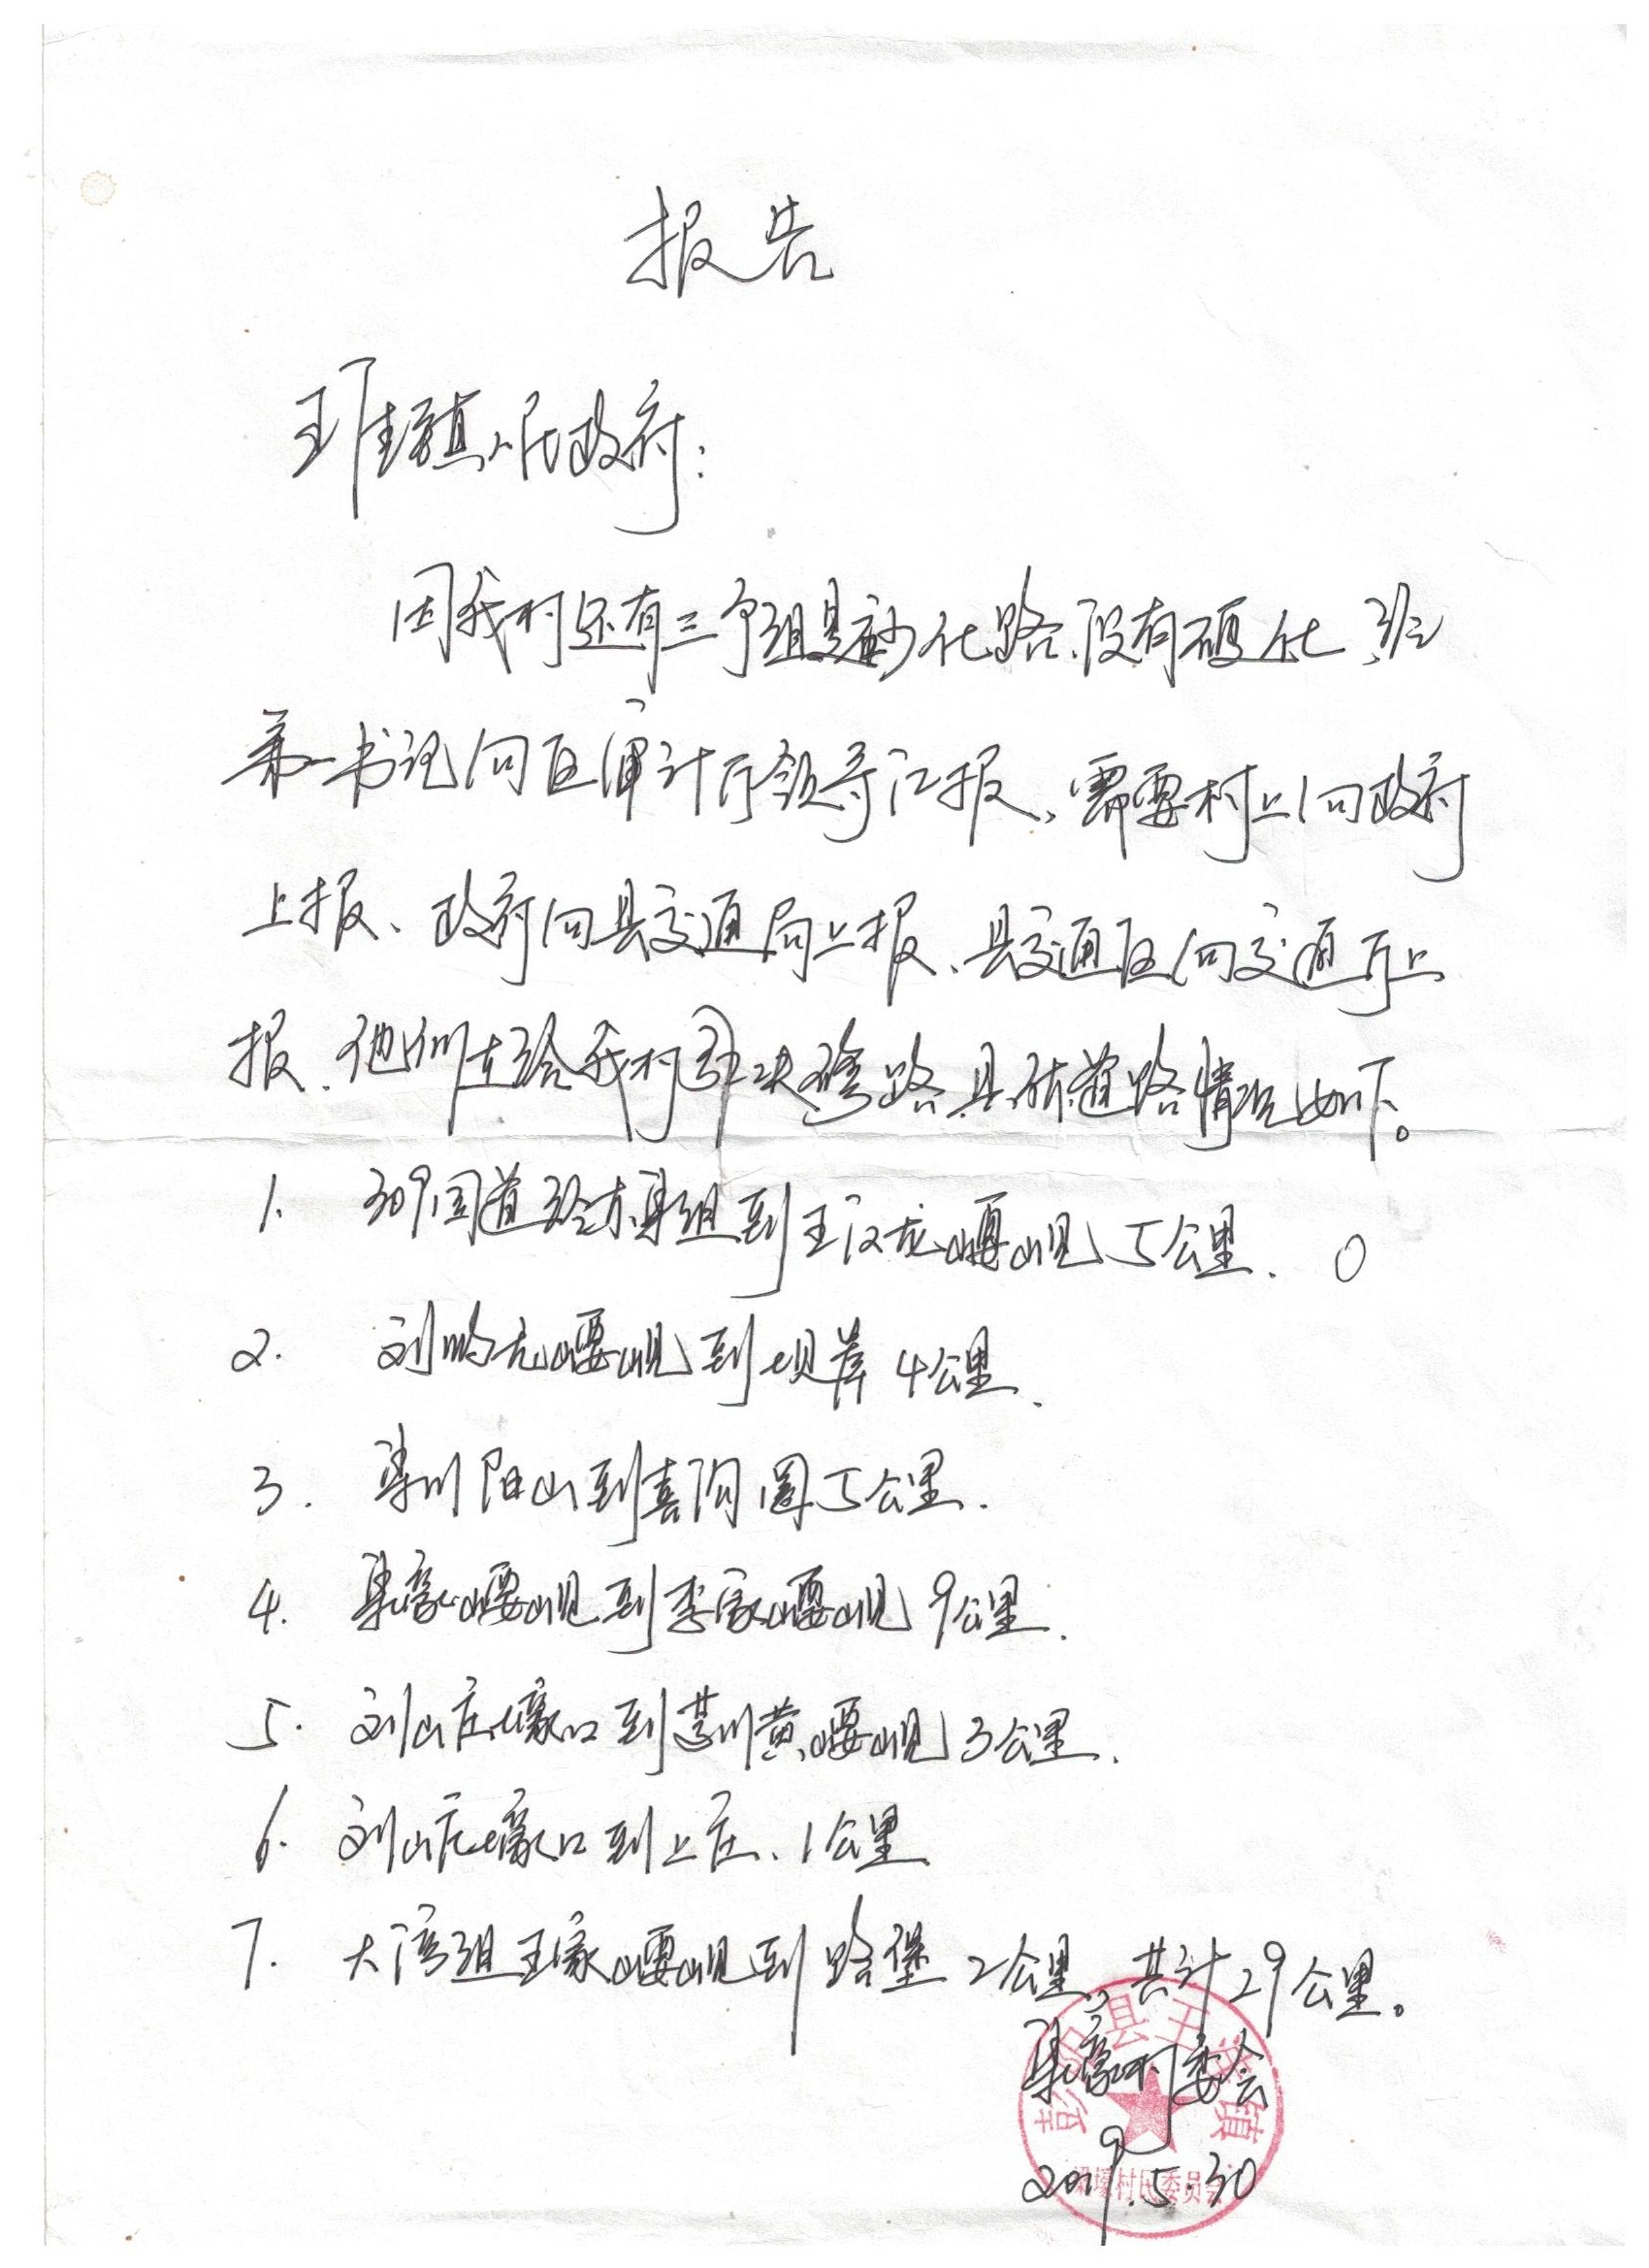 报告
王洼镇人民政府:
因我村还有三个组是砂化路、没有硬化、
第一书记向区审计厅领导汇报、需要村上向政府
上报、政府向县交通局上报、县交通区向交通厅上
报、他们在给我村解决修路具体道路情况如下。
1、309国道 到王汉龙崾岘5公里、0
2. 刘 崾岘到坝岸4公里、
3. 梁川阳山到喜 5公里.
4. 梁壕崾岘到李家崾岘9公里.
5. 刘山庄壕口到 川黄崾岘3公里.
6. 刘山庄壕口到上庄、1公里
7. 大湾组王家崾岘到 堡2公里,共计29公里。
梁壕村委会
2019.5.30
县王洼镇
梁壕村民委员会